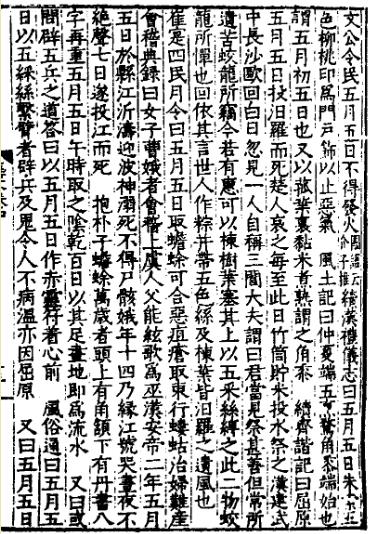 文公令民五月五日不得發火國語云介子推續漢禮儀志曰五月五日朱五
色柳桃印為門戶飾以止惡氣　風土記曰仲夏端五烹鶩角黍端始也
謂五月初五日也又以菰葉裹黏米煮熟謂之角黍　續齊諧記曰屈原
五月五日投汨羅而死楚人哀之每至此日竹筒貯米投水祭之漢建武
中長沙歐回白日忽見一人自稱三閭大夫謂曰君當見祭甚善但常所
遺苦蛟龍所竊今若有惠可以楝樹葉塞其上以五采絲縛之此二物蛟
龍所憚也回依其言世人作粽并帶五色絲及楝葉皆汨羅之遺風也
崔寔四民月令曰五月五日取蟾蜍可合惡疽瘡取東行螻蛄治婦難產
會稽典錄曰女子曹娥者會稽上虞人父能絃歌為巫漢安帝二年五月
五日於縣江泝濤迎波神溺死不得尸骸娥年十四乃緣江號哭晝夜不
絕聲七日遂投江而死　抱朴子蟾蜍萬歲者頭上有角頷下有丹書八
字再重五月五日午時取之陰乾百日以其足畫地即為流水　又曰或
問辟五兵之道答曰以五月五日作赤靈符著心前　風俗通曰五月五
日以五綵絲繫臂者辟兵及鬼令人不病溫亦因屈原　又曰五月五日